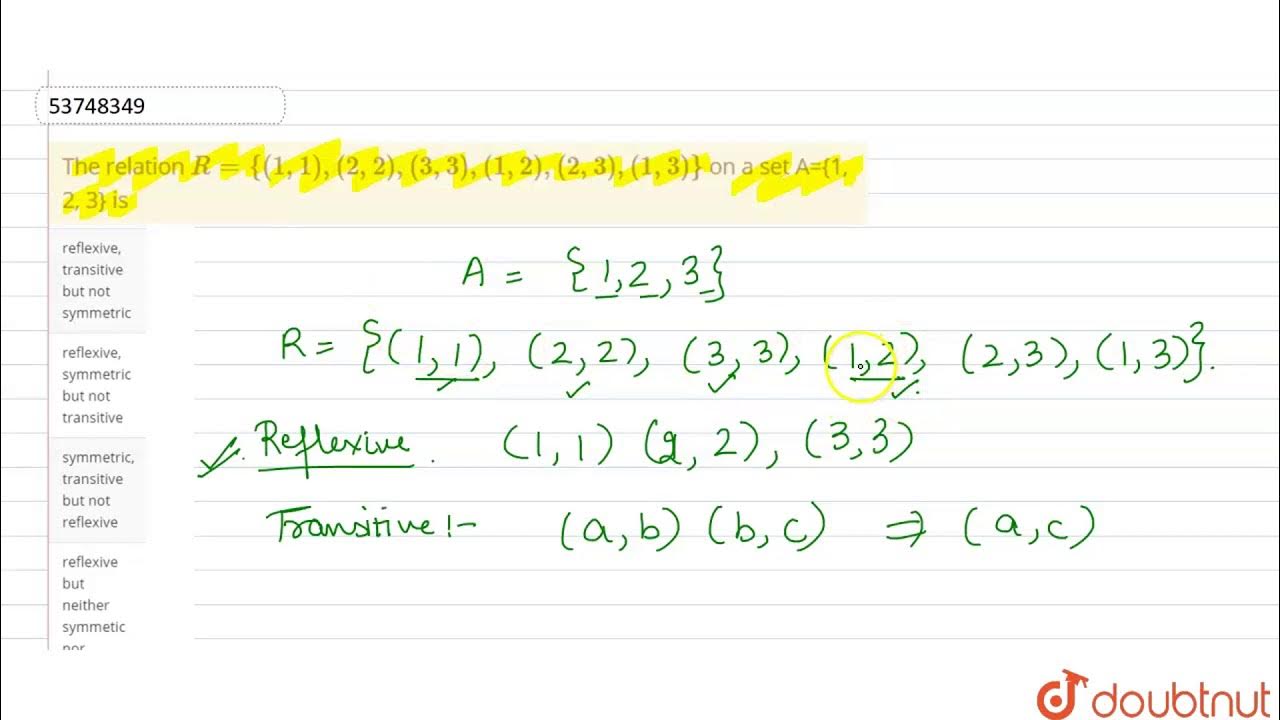 53748349
The relation R = {(1, 1), (2, 2), (3, 3), (1, 2), (2, 3), (1, 3)} on a set A={1,
2, 3} is
reflexive,
transitive
but not
symmetric
reflexive,
symmetric
but not
transitive
symmetric,
transitive
but not
reflexive
reflexive
but
neither
symmetic
nor
A = {1,2,3}
R = {(1,1), (2,2), (3,3), (1,2), (2,3), (1,3)}.
Reflexive. (1,1) (2,2), (3,3)
Transitive:- (a,b) (b,c) ⇒ (a,c)
doubtnut